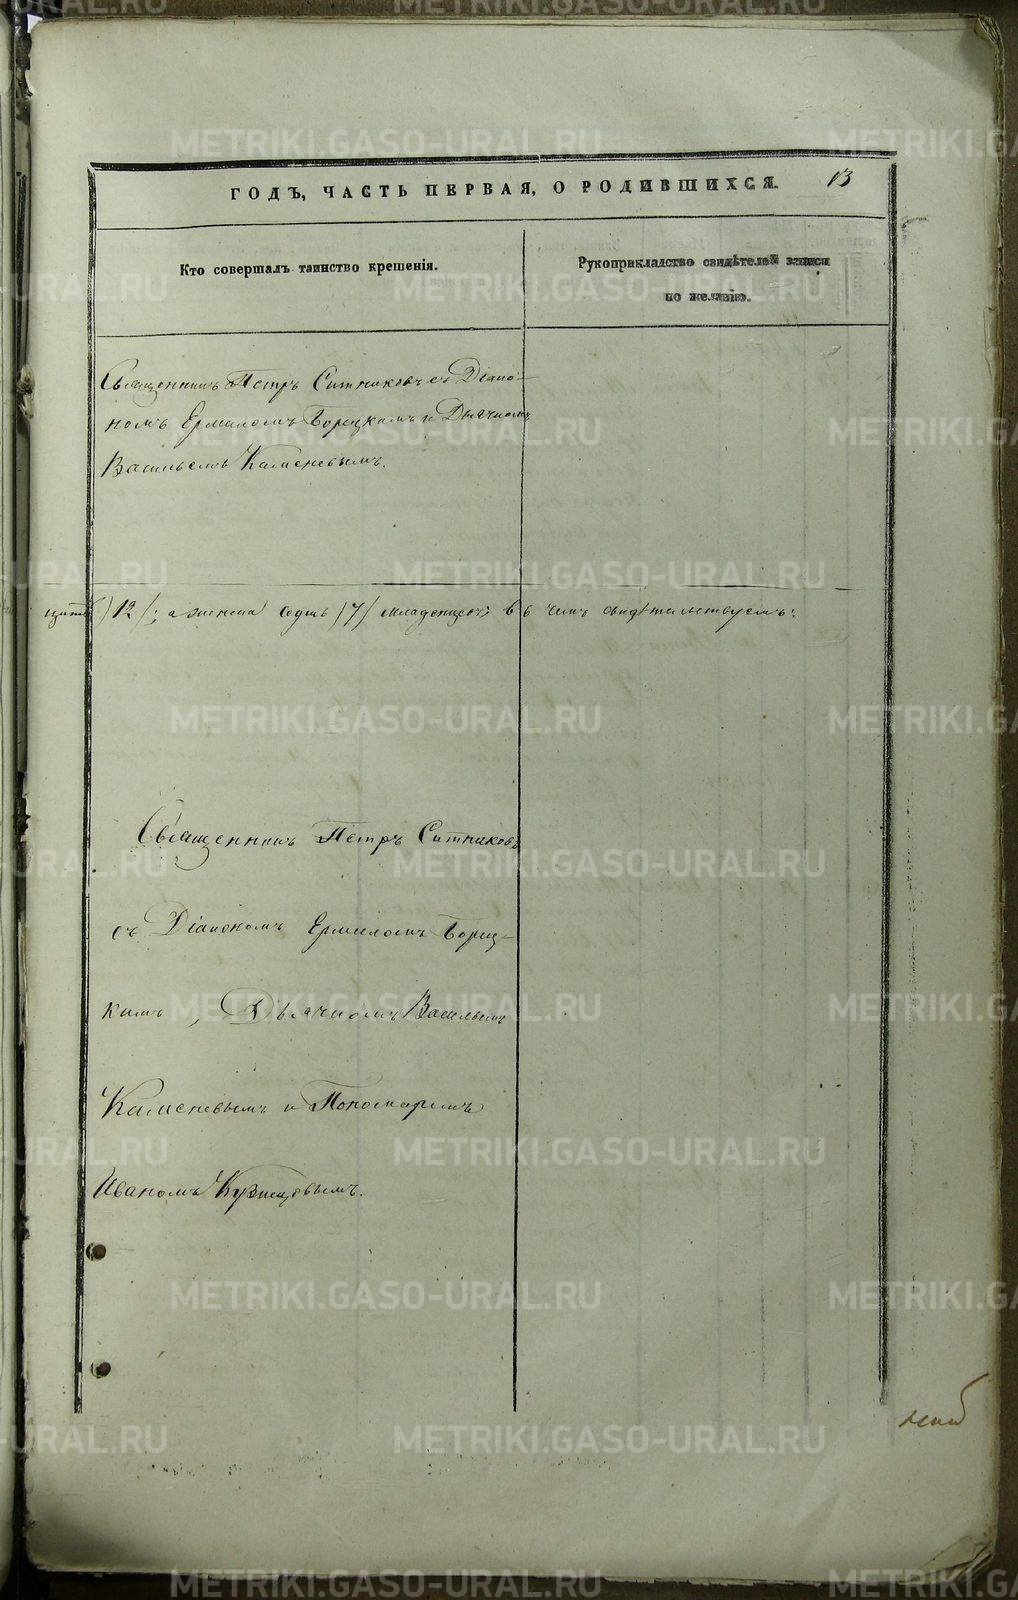 ГОДЪ, ЧАСТЬ ПЕРВАЯ, О РОДИВШИХСЯ. 13
Кто совершалъ таинство крещенія.
Рукоприкладство свидѣтелей записи
по желанію.
Священникъ Петръ Ситниковъ съ Діако-
номъ Ермиломъ Борецкимъ и Дьячкомъ
Васильемъ Каменевымъ.
/12/; а женска седмь /7/ младенцевъ; въ чемъ свидѣтельствуемъ:
Священникъ Петръ Ситниковъ
съ Діакономъ Ермиломъ Борец-
кимъ, Дьячкомъ Васильемъ
Каменевымъ и Пономаремъ
Иваномъ Кузнецовымъ.
METRIKI.GASO-URAL.RU